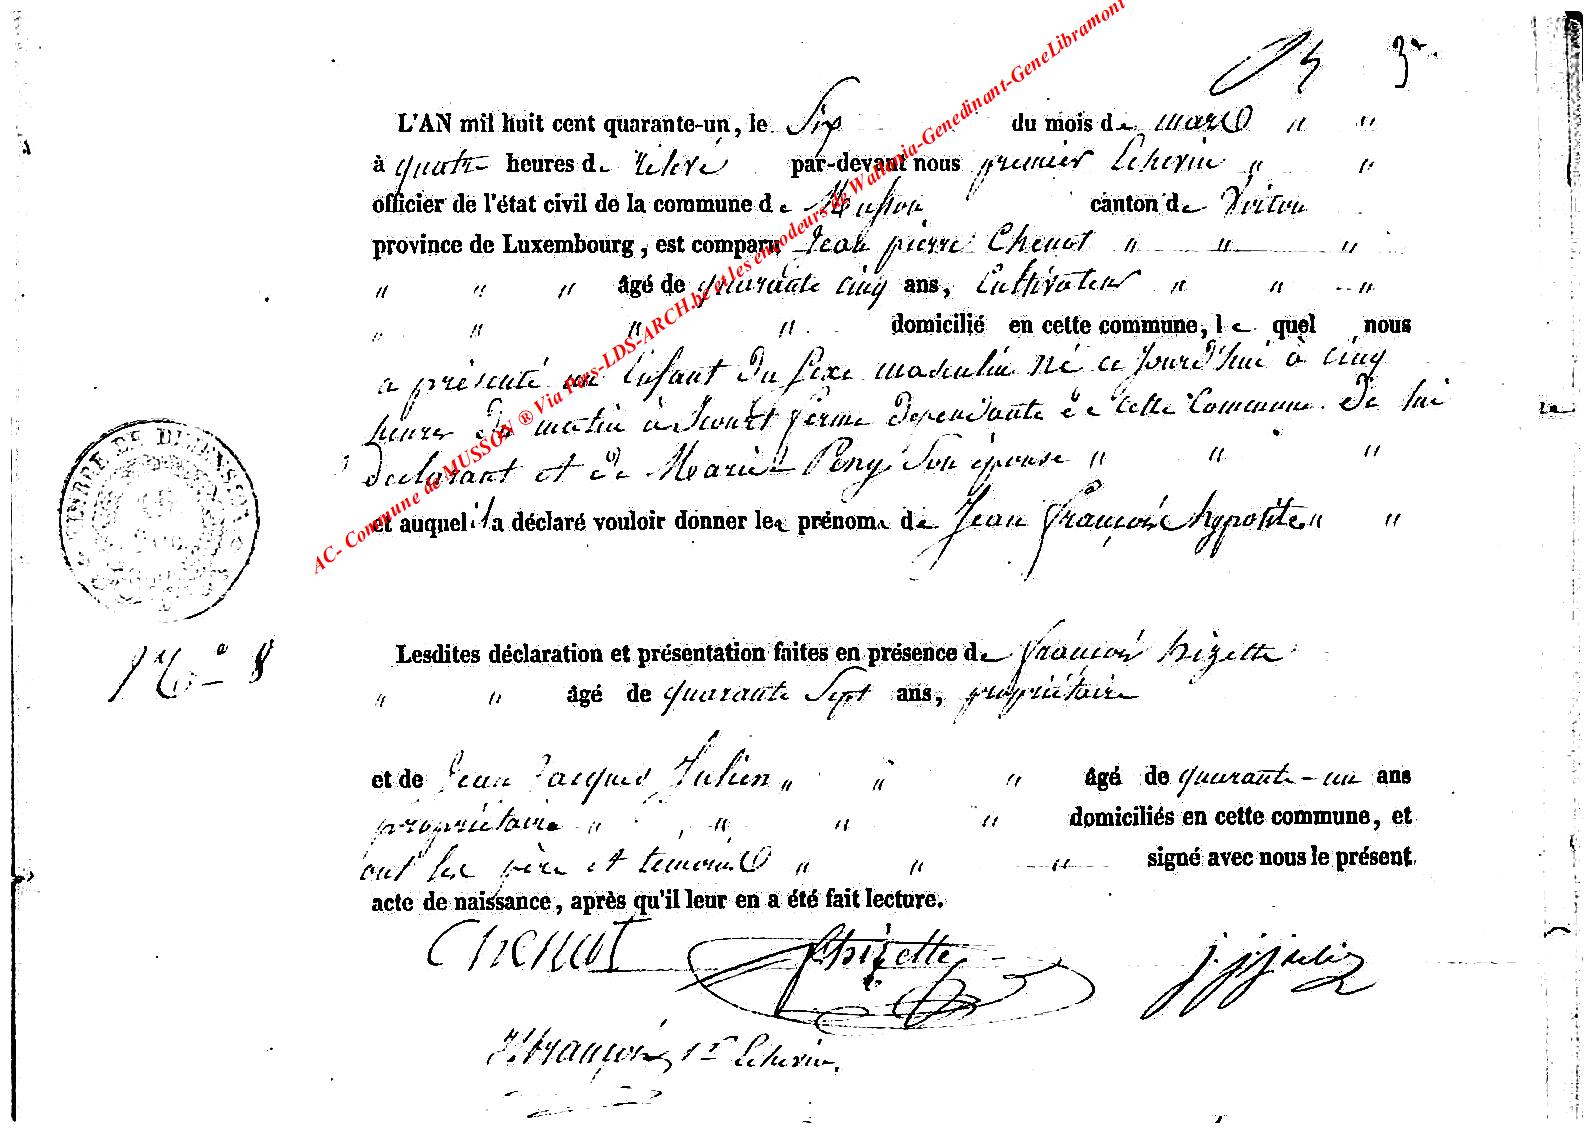 3
L'AN mil huit cent quarante-un, le Six du mois de mars " "
à quatre heures de relevé par-devant nous premier Echevin " "
officier de l'état civil de la commune de Musson canton de Virton
province de Luxembourg, est comparu Jean pierre Chenot " " "
" " " âgé de quarante cinq ans, Cultivateur " " "
" " " " domicilié en cette commune, le quel nous
a présenté un Enfant du sexe masculin né ce jourd'hui à cinq
heures du matin à ferme dependante de cette Commune de lui
declarant et de Marie Pony son épouse " " "
et auquel il a déclaré vouloir donner les prénoms de Jean françois hypolite " "
N° 8
Lesdites déclaration et présentation faites en présence de françois hizette
" " âgé de quarante Sept ans, propriétaire
et de Jean Jacques Julien " " " âgé de quarante-un ans
propriétaire " " " " domiciliés en cette commune, et
ont les père et temoins " " " signé avec nous le présent
acte de naissance, après qu'il leur en a été fait lecture.
Chenot hizette j j julien
françois, 1er Echevin.
TIMBRE DE DIMENSION
AC- Commune de MUSSON ® Via Pars-LDS-ARCH.be et les encodeurs de Wallonia-Genedinant-GeneLibramont